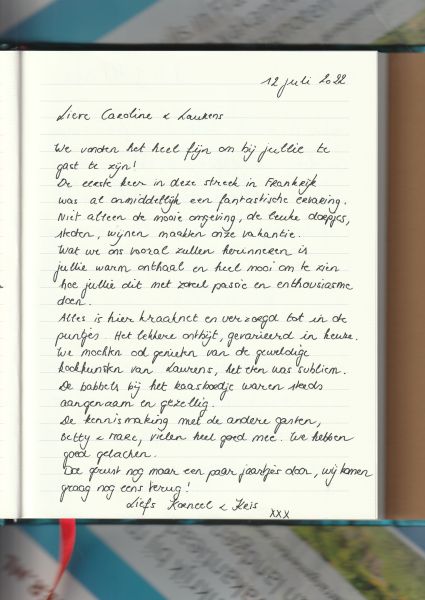 12 juli 2022
Lieve Caroline & Laurens
We vonden het heel fijn om bij jullie te
gast te zijn!
De eerste keer in deze streek in Frankrijk
was al onmiddellijk een fantastische ervaring.
Niet alleen de mooie omgeving, de leuke dorpjes,
steden, wijnen maakten onze vakantie.
Wat we ons vooral zullen herinneren is
jullie warm onthaal en heel mooi om te zien
hoe jullie dit met zoveel passie en enthousiasme
doen.
Alles is hier kraaknet en verzorgd tot in de
puntjes. Het lekkere ontbijt, gevarieerd in keuze.
We mochten ook genieten van de geweldige
kookkunsten van Laurens, het eten was subliem.
De babbels bij het kaasbordje waren steeds
aangenaam en gezellig.
De kennismaking met de andere gasten,
Betty & Marc, vielen heel goed mee. We hebben
goed gelachen.
Doe gerust nog maar een paar jaartjes door, wij komen
graag nog eens terug!
Liefs Karneel & Kris
xxx